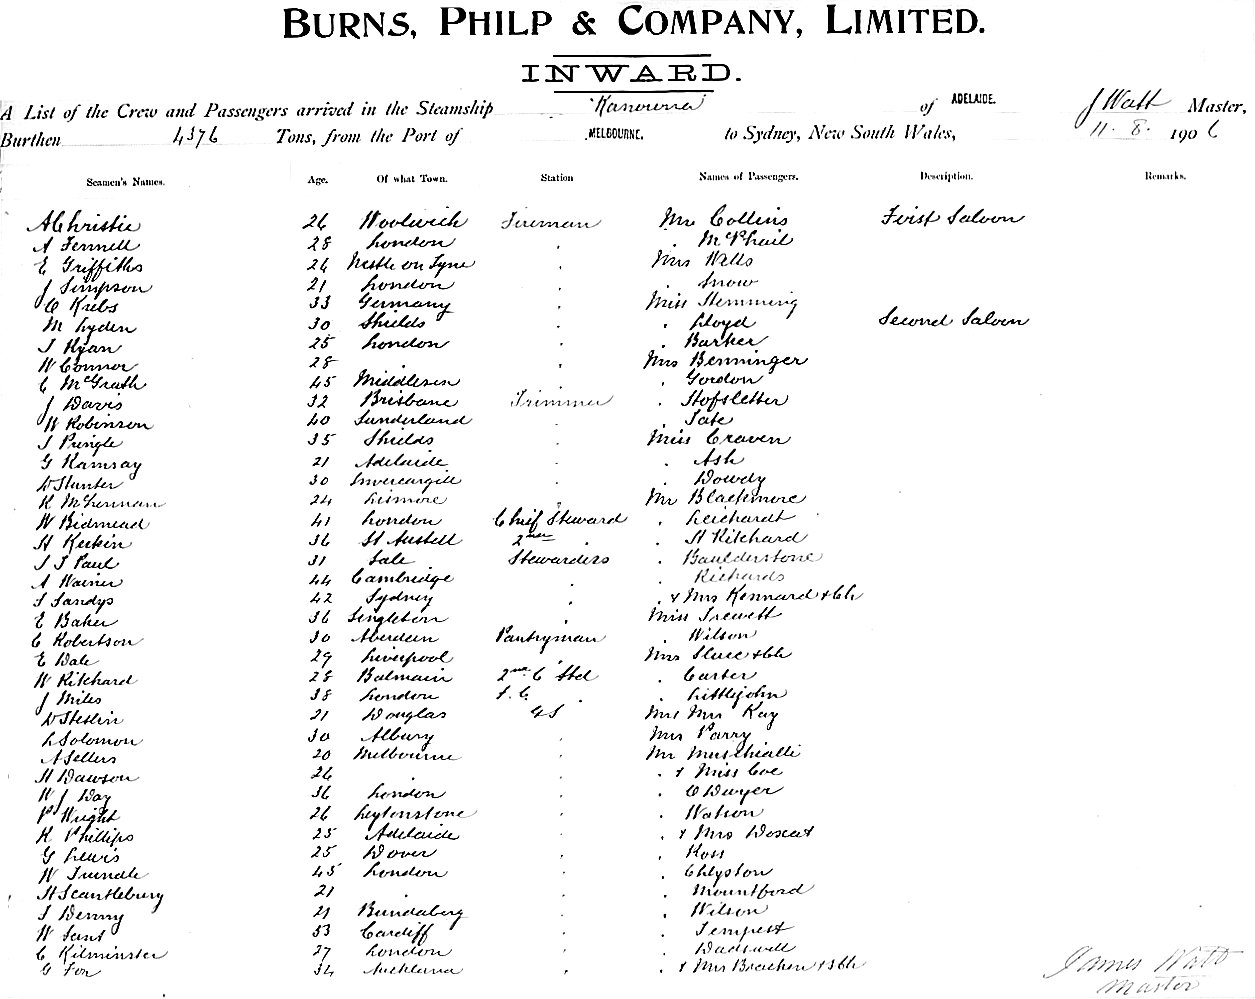 BURNS, PHILP & COMPANY, LIMITED.
INWARD.
A List of the Crew and Passengers arrived in the Steamship "Kanowna" of ADELAIDE. J Watt Master,
Burthen 4376 Tons, from the Port of MELBOURNE. to Sydney, New South Wales, 11. 8. 1906
Seamen's Names. Age. Of what Town. Station Names of Passengers. Description. Remarks.
A Christie 26 Woolwich Fireman Mr Collins First Saloon
A Fennell 28 London " " McPhail
E Griffiths 26 Nestle on Tyne " Mrs Wells
J Simpson 21 London " " Snow
C Krebs 33 Germany " Miss Hemming
M Lyden 30 Shields " " Lloyd Second Saloon
J Ryan 25 London " " Barker
W Connor 28 " " Mrs Benninger
C McGrath 45 Middlesex " Gordon
J Davis 32 Brisbane Trimmer " Hofsletter
W Robinson 40 Sunderland " " Tate
J Pringle 35 Shields " Miss Craven
G Ramsay 21 Adelaide " " Ash
D Hunter 30 Invercargill " " Dowdy
K McLennan 24 Lismore " Mr Blackmore
W Bidmead 41 London Chief Steward " Leichardt
H Keekin 36 St Austell 2nd " " H Ritchard
J J Paul 31 Sale Stewardess " Baulderstone
A Warner 44 Cambridge " Richards
S Sandys 42 Sydney " " & Mrs Kennard & Ch
E Baker 36 Singleton " Miss Trewett
C Robertson 30 Aberdeen Pantryman " Wilson
E Dale 29 Liverpool " Mrs & Ch
W Ritchard 28 Balmain 2nd C Std " Carter
J Miles 38 London F. C. " Littlejohn
D Steslin 21 Douglas G S Mr & Mrs Kay
L Solomon 30 Albury " Mrs Parry
A Sellers 20 Melbourne " Mr Muschialli
H Dawson 26 " " " & Miss Coe
W J Day 36 London " " O Dwyer
P Wright 26 Leytonstone " " Watson
K Phillips 25 Adelaide " " & Mrs Doscat
G Lewis 25 Dover " " Ross
W Trundle 45 London " " Chlyston
H Scantlebury 21 " " " Mountford
J Denny 21 Bundaberg " " Wilson
W Sant 53 Cardiff " " Tempest
C Kilminster 27 London " " Dadswell
G Fox 34 Auckland " " & Mrs Bracken & 3 Ch
James Watt
Master